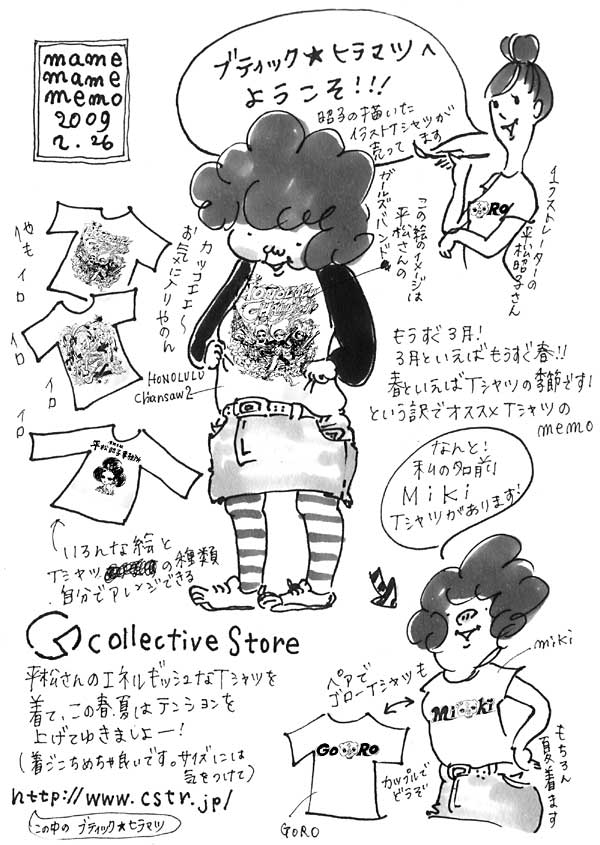 mame
mame
memo
2009
2.26
ブティック★ヒラマツへ
ようこそ!!!
昭子の描いた
イラストTシャツが
売ってます
イラストレーターの
平松昭子さん
GoRo
この絵のイメージは
平松さんの
ガールズバンド
カッコエエ〜
お気に入りやのん
HONOLULU
Chansaw2
HONOLULU
イロ
イロ
イロ
平松昭子事務所
いろんな絵と
Tシャツの種類
自分でアレンジできる
もうすぐ3月!
3月といえばもうすぐ春!!
春といえばTシャツの季節です!
という訳でオススメTシャツの
memo
なんと!
私の名前
Miki
Tシャツがあります!
miki
Miki
もちろん
夏着ます
ペアで
ゴローTシャツも
GoRo
カップルで
どうぞ
GORO
collective Store
平松さんのエネルギッシュなTシャツを
着て、この春夏はテンションを
上げてゆきましょー!
(着ごこちめちゃ良いです。サイズには
気をつけて)
http://www.cstr.jp/
この中の ブティック★ヒラマツ